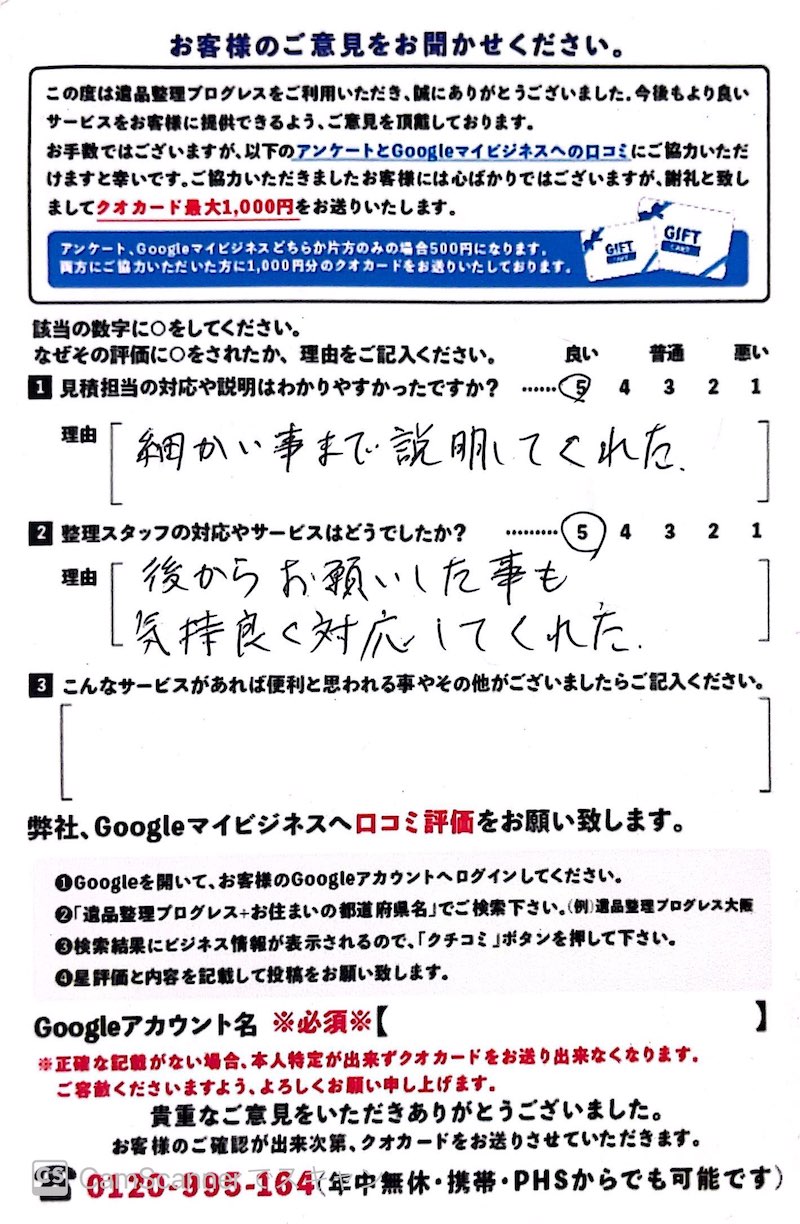 お客様のご意見をお聞かせください。
この度は遺品整理プログレスをご利用いただき、誠にありがとうございました。今後もより良い
サービスをお客様に提供できるよう、ご意見を頂戴しております。
お手数ではございますが、以下のアンケートとGoogleマイビジネスへの口コミにご協力いただ
けますと幸いです。ご協力いただきましたお客様には心ばかりではございますが、謝礼と致し
ましてクオカード最大1,000円をお送りいたします。
アンケート、Googleマイビジネスどちらか片方のみの場合500円になります。
両方にご協力いただいた方に1,000円分のクオカードをお送りいたしております。
GIFT
CART
GIFT
CART
該当の数字に○をしてください。
なぜその評価に○をされたか、理由をご記入ください。 良い 普通 悪い
1 見積担当の対応や説明はわかりやすかったですか? ……5 4 3 2 1
理由 細かい事まで説明してくれた.
2 整理スタッフの対応やサービスはどうでしたか? ………5 4 3 2 1
理由 後からお願いした事も
気持良く対応してくれた.
3 こんなサービスがあれば便利と思われる事やその他がございましたらご記入ください。
弊社、Googleマイビジネスへ口コミ評価をお願い致します。
❶Googleを開いて、お客様のGoogleアカウントへログインしてください。
❷「遺品整理プログレス+お住まいの都道府県名」でご検索下さい。(例)遺品整理プログレス大阪
❸検索結果にビジネス情報が表示されるので、「クチコミ」ボタンを押して下さい。
❹星評価と内容を記載して投稿をお願い致します。
Googleアカウント名 ※必須※【 】
※正確な記載がない場合、本人特定が出来ずクオカードをお送り出来なくなります。
ご容赦くださいますよう、よろしくお願い申し上げます。
貴重なご意見をいただきありがとうございました。
お客様のご確認が出来次第、クオカードをお送りさせていただきます。
CS CamScanner でスキャン
0120-998-164(年中無休・携帯・PHSからでも可能です)